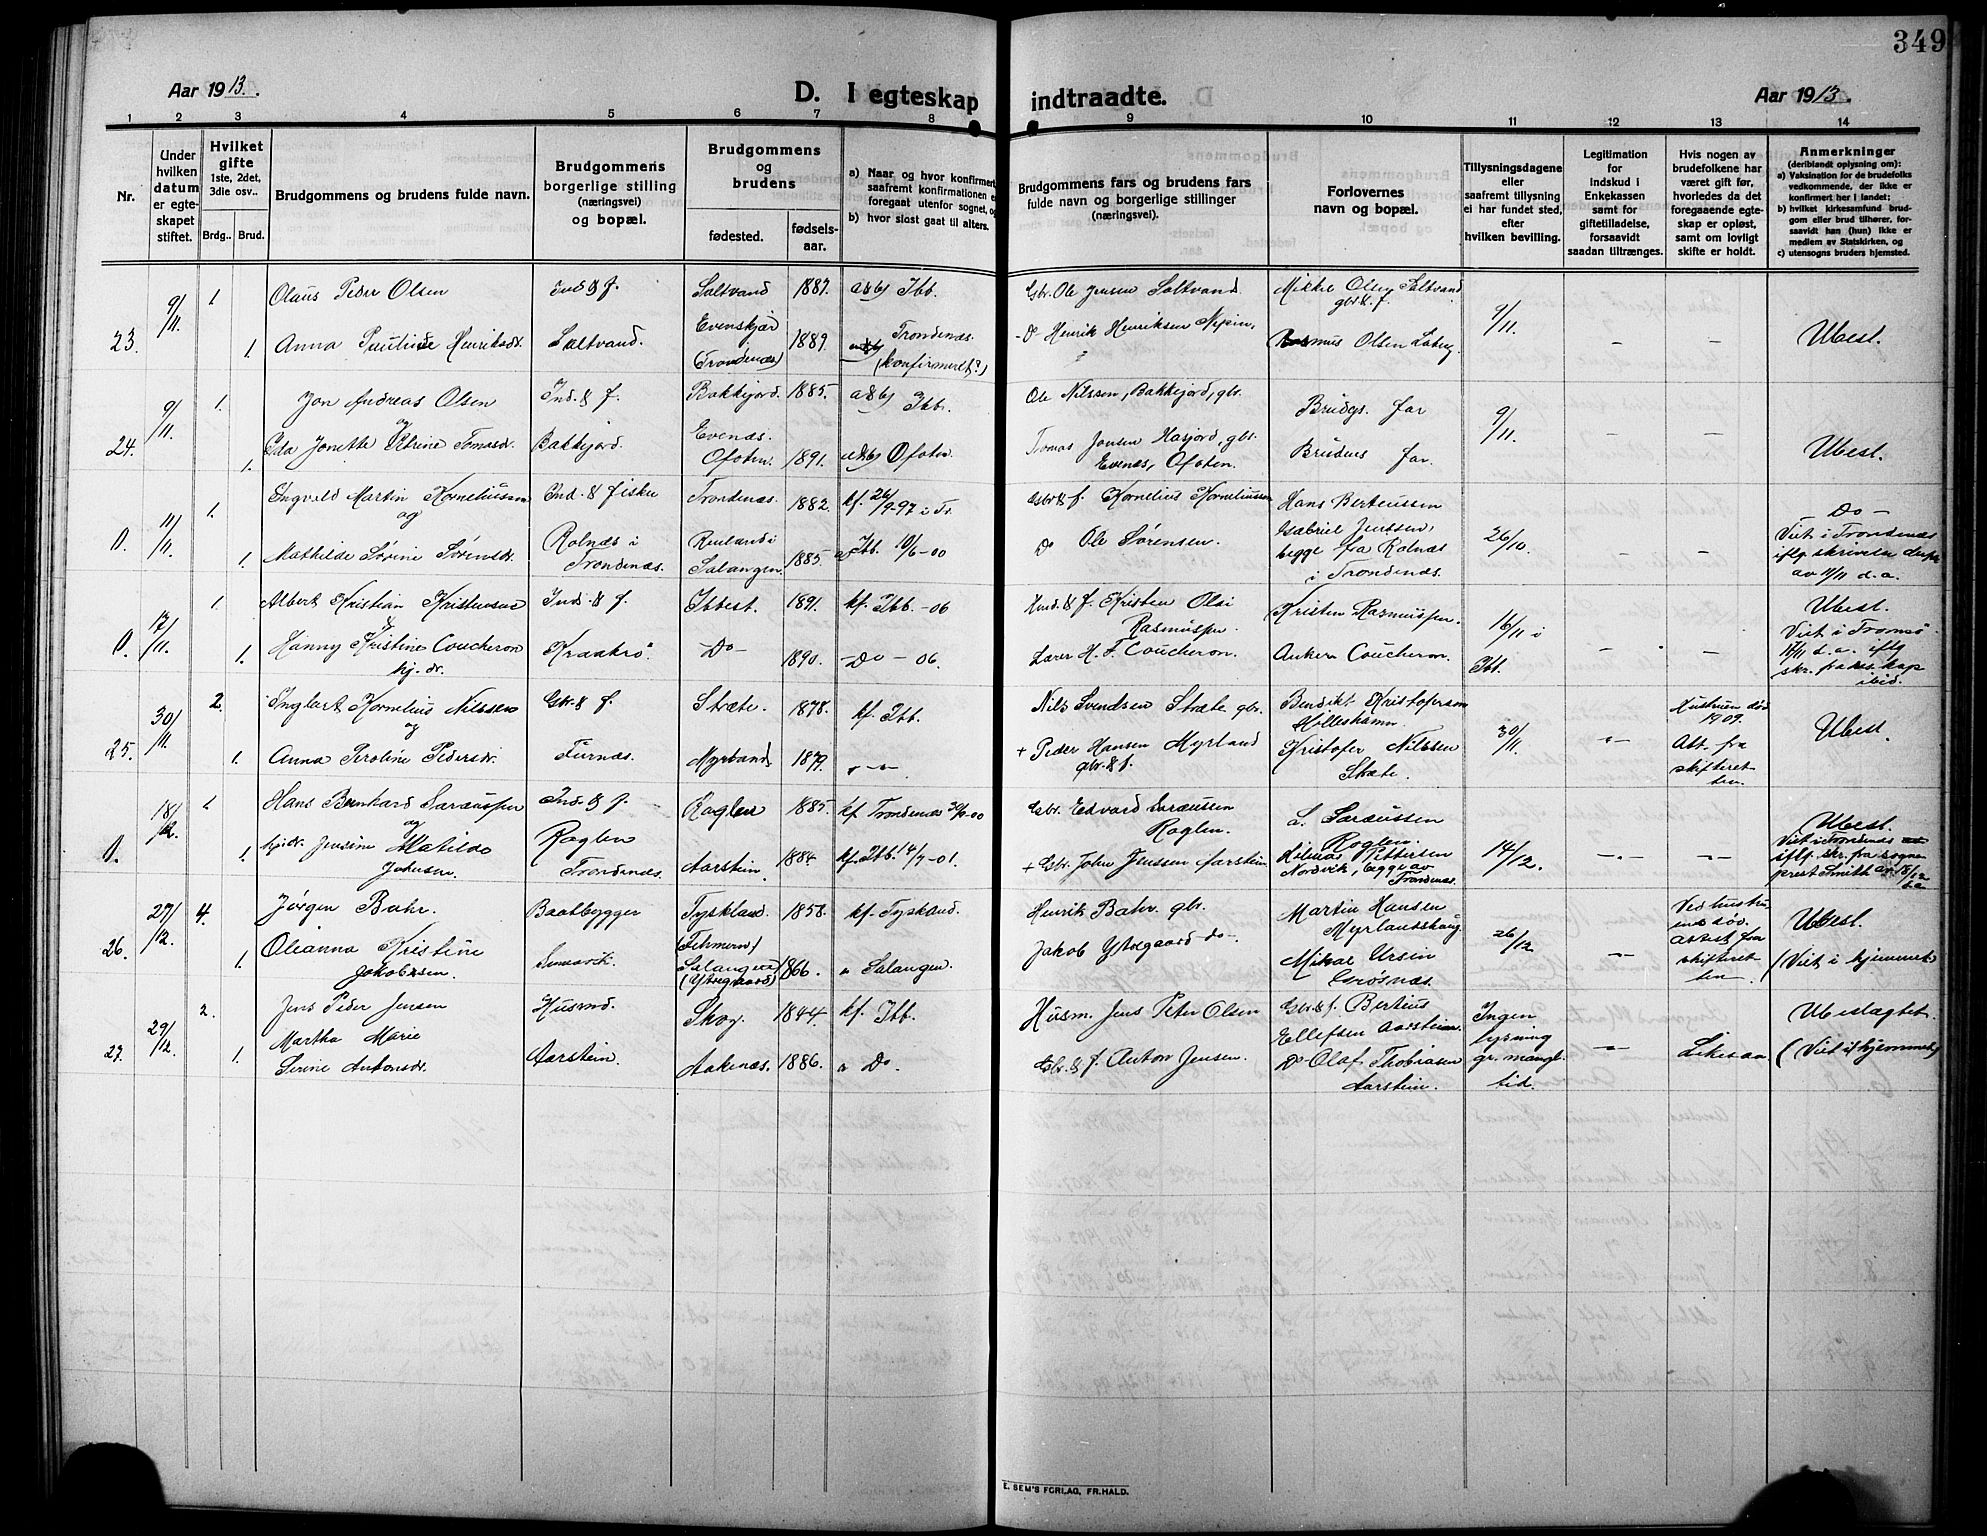 349
Aar 1913.
D. I egteskap indtraadte.
Aar 1913.
1 2 3 4 5 6 7 8 9 10 11 12 13 14
Nr.
Under hvilken datum er egteskapet stiftet.
Hvilket gifte 1ste, 2det, 3die osv..
Brdg.. Brud.
Brudgommens og brudens fulde navn.
Brudgommens borgerlige stilling (næringsvei) og bopæl.
Brudgommens og brudens
fødested.
fødselsaar.
a) Naar og hvor konfirmert, saafremt konfirmationen er foregaat utenfor sognet, og
b) hvor sidst gaat til alters.
Brudgommens fars og brudens fars fulde navn og borgerlige stillinger (næringsvei).
Forlovernes navn og bopæl.
Tillysningsdagene eller saafremt tillysning ei har fundet sted, efter hvilken bevilling.
Legitimation for indskud i Enkekassen samt for giftetilladelse, forsaavidt saadan tiltrænges.
Hvis nogen av brudefolkene har været gift før, hvorledes da det foregaaende egteskap er opløst, samt om lovligt skifte er holdt.
Anmerkninger (deriblandt oplysning om):
a) Vaksination for de brudefolks vedkommende, der ikke er konfirmert her i landet;
b) hvilket kirkesamfund brudgom eller brud tilhører, forsaavidt han (hun) ikke er medlem av Statskirken, og
c) utensogns bruders hjemsted.
9/11. 1 Olaus Peder Olsen Ind & f. Saltvand 1887. a & b, Ibb. Gbr. Ole Jensen Saltvand. Mikkel Olsen Saltvand gbr & f. 9/11.
23. 1. Anna Pauline Henriksdr. Saltvand. Evenskjær (Trondenæs) 1889. Trondenæs. (konfirmert?) Do Henrik Henriksen Rasmus Olsen - - Ubesl.
9/11. 1. Jon Andreas Olsen Ind. & f. Bakkejord. 1885. a & b, Ibb. Ole Nilssen, Bakkejord, gbr. Brudgs. far 9/11.
og
24. 1. Ida Jonette Petrine Tomasdr. Bakkejord. Evenæs. Ofoten. 1891. a & b, Ofoten. Tomas Jonsen Hasjord, gbr. Evenæs, Ofoten. Brudens far. - - Ubesl.
11/11. 1. Ingvald Martin Korneliussen Ind. & fisker Trondenæs. 1882. kf. 26/9-97 i Tr. Gbr & f. Kornelius Korneliussen Hans Berteussen
og
0. 1. Mathilde Sørine Sørensdr. Rolnæs i Trondenæs. Salangen. 1885. Ibb. 10/6-00 Do Ole Sørensen. Gabriel Jenssen, begge fra Rolnæs i Trondenæs. 26/10. - - Do - Viet i Trondenæs iflg. skrivelse av 11/11 d.a.
17/11. 1. Albert Kristian Kristensen Ind. & f. Ibbest. 1891. kf. Ibb. -06 Husm. & f. Kristen Olai Rasmussen. Kristen Rasmussen. 16/11 i Ubesl.
&
0. 1. Hanny Kristine Coucheron hj. dr. Kraakrø. -Do- 1890. -Do- 06. Lærer H. F. Coucheron. Anker Coucheron. Ibb. - - Viet i Tromsø 17/11 d.a. iflg skr. fra res. kap ibid.
30/11. 2. Inglart Kornelius Nilssen Gbr. & f. Stræte. 1878. kf. Ibb. Nils Svendsen Stræte gbr. Bendikt Kristofersen Hilleshamn. Hustruen død 1909.
og
25. 1. Anna Peroline Pedersdr. Furnæs. Myrland 1879. " - " - + Peder Hansen Myrland gbr. & f. Kristofer Nilssen Stræte. 30/11. -"- Att. fra skifteretten. Ubesl.
18/12. 1 Hans Bernhard Larsussen Ind & f. Roglen 1885 kf Trondenæs 30/9-00 Gbr. Edvard Larsussen Roglen. L. Larsussen Roglen. Ubesl.
og
0. 1. hj.dr. Jensine Matilde Johnsen. Roglen Trondenæs. Aarstein. 1884 kf. Ibb. 14/7-01. + Gbr. John Jenssen Aarstein Hilmar Pettersen Nordvik, begge av Trondenæs. 14/12. -"- -"- Viet i Trondenæs iflg. skr. fra sogneprest Smith av 18/12 d.a
27/12. 4. Jørgen Bahr. Baatbygger Tyskland. (Fehmern) 1858. kf. Tyskland. Henrik Bahr. gbr. Martin Hansen Myrlandshaug Ved hustruens død. Ubesl.
26. 1. Olianna Kristine Jakobsen. Salangen (Ystregaard) 1866. " Salangen. Jakob Ystregaard do -. Mikal Ursin Grøsnæs. 26/12. -"- Attest fra skifteretten (Viet i hjemmet)
29/12. 2. Jens Peder Jensen Husmd. Skog. 1844. kf. Ibb. Husm. Jens Peter Olsen Gbr. & f. Bertius Ellefsen Aarstein. Ingen lysning Ubeslægtet.
27. 1. Martha Marie Serine Antonsdr. Aarstein. Aakenæs. 1886. " Do. Gbr. & f. Anton Jensen. Do Olaf Thobiasen Aarstein. gr. mangl. tid. -"- Likesaa. (Viet i hjemmet)
E. SEM'S FORLAG, FR.HALD.